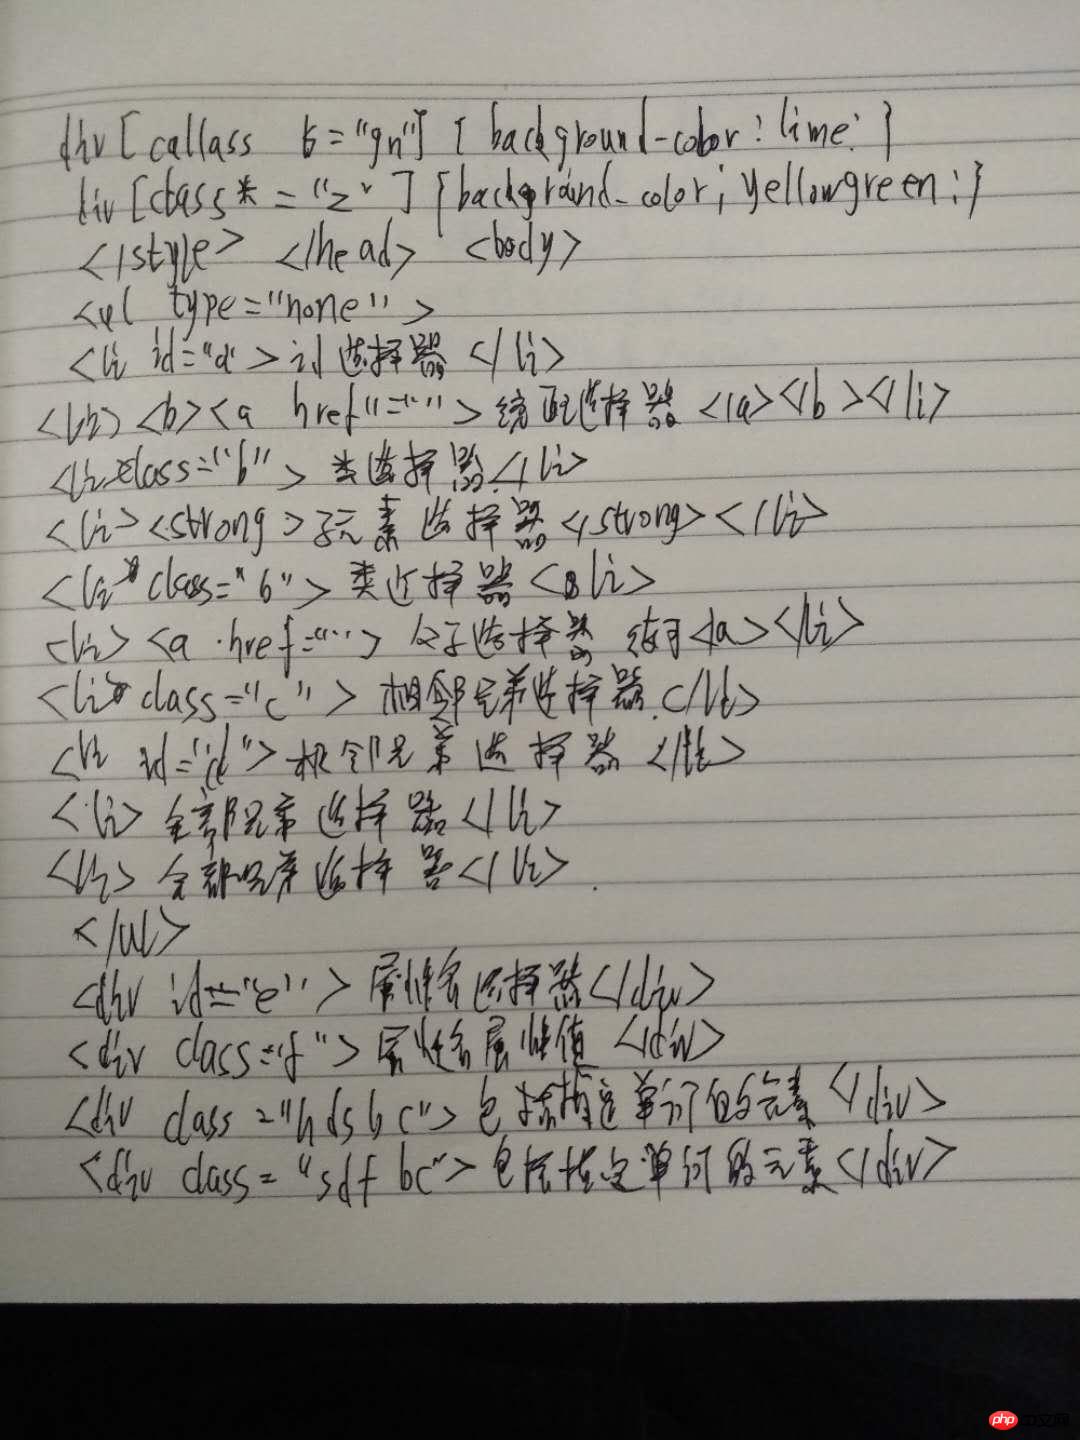 div[callass $="gn"]{background-color:lime:}
div[class*="z"]{background-color;yellowgreen:}
</style> </head> <body>
<ul type="none">
<li id="a">id选择器</li>
<li><b><a href"="">统配选择器</a></b></li>
<li class="b">类选择器</li>
<li><strong>子元素选择器</strong></li>
<li class="b">类选择器</li>
<li><a href="">父子选择器</a></li>
<li class="c">相邻兄弟选择器</li>
<li id="d">相邻兄弟选择器</li>
<li>全部兄弟选择器</li>
<li>全部兄弟选择器</li>
</ul>
<div id="e">属性名选择器</div>
<div class="f">属性名属性值</div>
<div class="h ds b c">包括指定单词的元素</div>
<div class="sdf bc">包括指定单词的元素</div>
php中文网